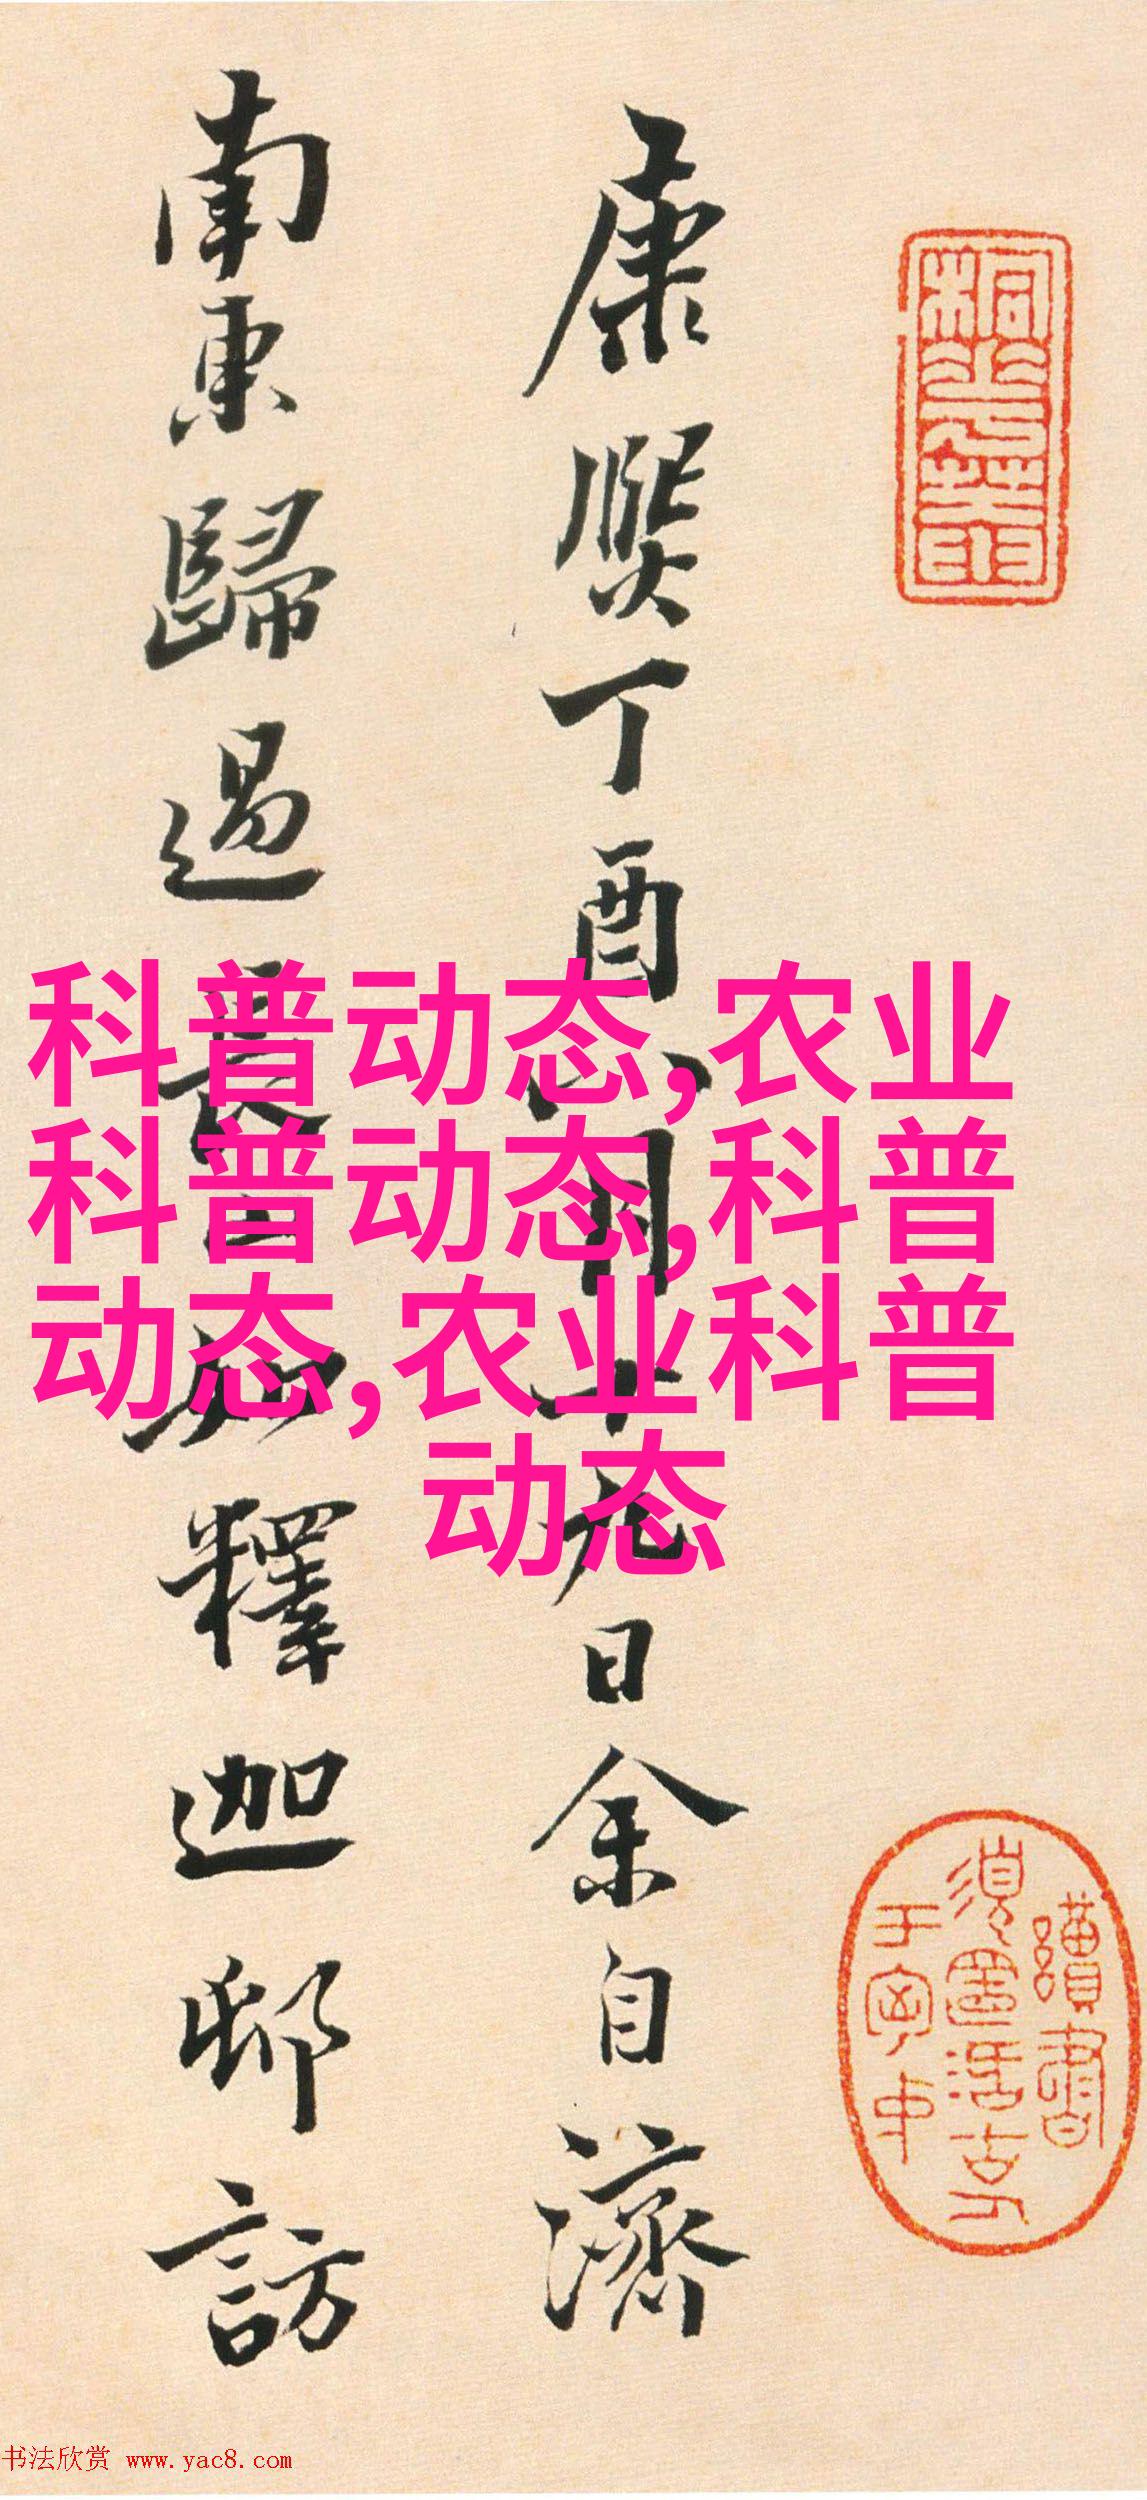 康熙丁酉八月十九日余自濟
南東歸過長如釋迦邨訪
科普动态,农业
科普动态,科普
动态,农业科普
动态
书法欣赏 www.yac8.com